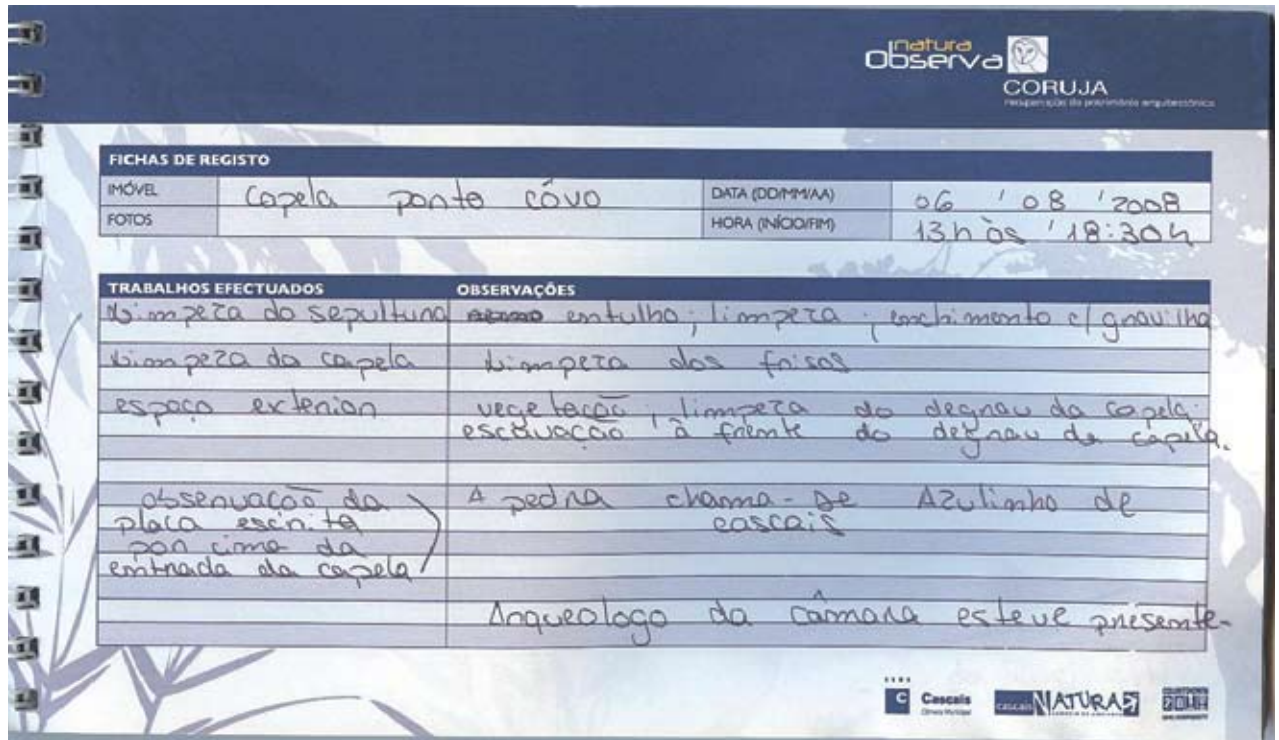 natura
Observa
CORUJA
recuperação do património arquitectónico
FICHAS DE REGISTO
IMÓVEL Capela ponto côvo DATA (DD/MM/AA) 06 / 08 / 2008
FOTOS HORA (INÍCIO/FIM) 13h às / 18:30h
TRABALHOS EFECTUADOS OBSERVAÇÕES
Limpeza do sepultura entulho; limpeza; enchimento c/ gravilha
Limpeza da capela Limpeza dos frisos
espaço exterior vegetação; limpeza do degrau da capela;
escavação à frente do degrau da capela.
observação da A pedra chama-se Azulinho de
placa escrita cascais
por cima da
entrada da capela
Arqueologo da câmara esteve presente.
C Cascais
Câmara Municipal
cascais NATURA